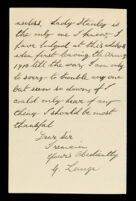 useless. Lady Stanley is
the only one I know. I
have lodged at this address
since first leaving the Army
1910 till the war, I am only
to sorry to trouble any one
but seem so downy if I
could only hear of any
thing I should be most
thankful
Dear Sir
I remain
Yours Obediantly
G. Lange